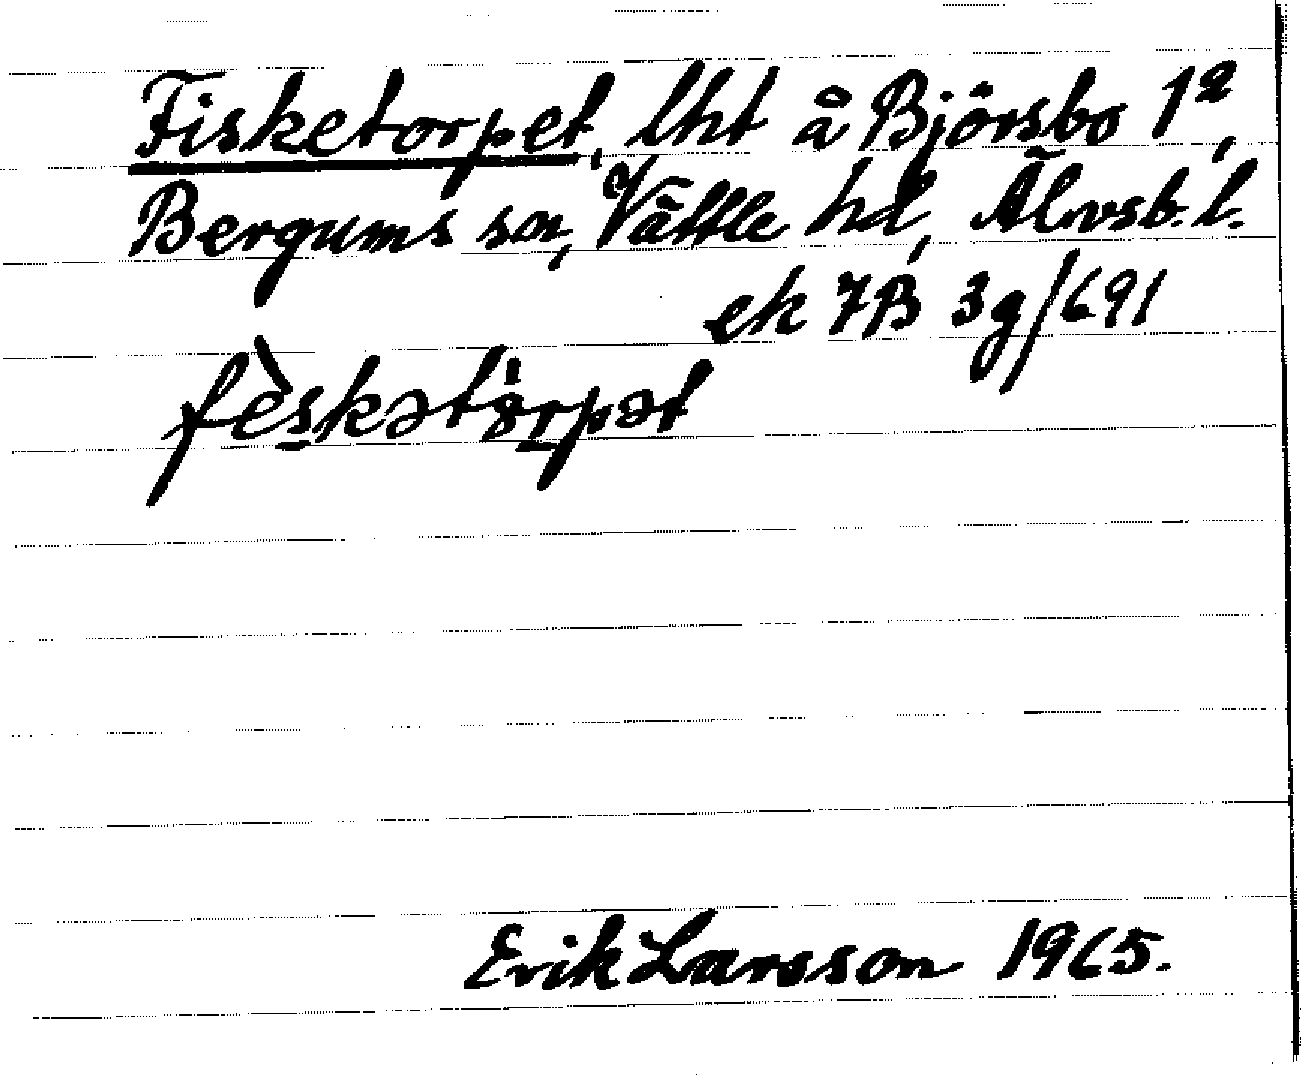 Fisketorpet, lht å Björsbo 1²,
Bergums sn, Vättle hd, Älvsb. l.
ek 7B 3g/691
fèskətò̤rpət
Erik Larsson 1965.